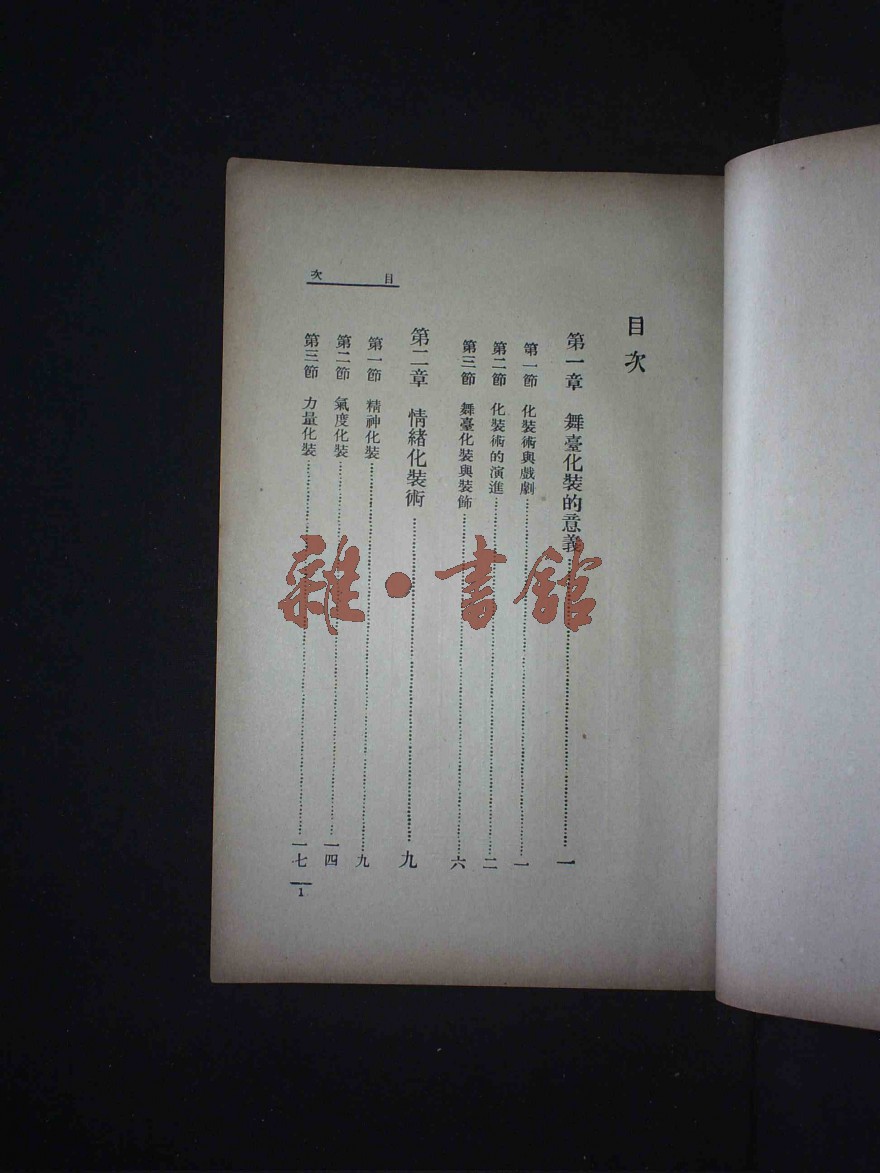 目次
目次
第一章 舞臺化裝的意義……一
第一節 化裝術與戲劇……一
第二節 化裝術的演進……二
第三節 舞臺化裝與裝飾……六
第二章 情緒化裝術……九
第一節 精神化裝……九
第二節 氣度化裝……一四
第三節 力量化裝……一七
1
雜·書館